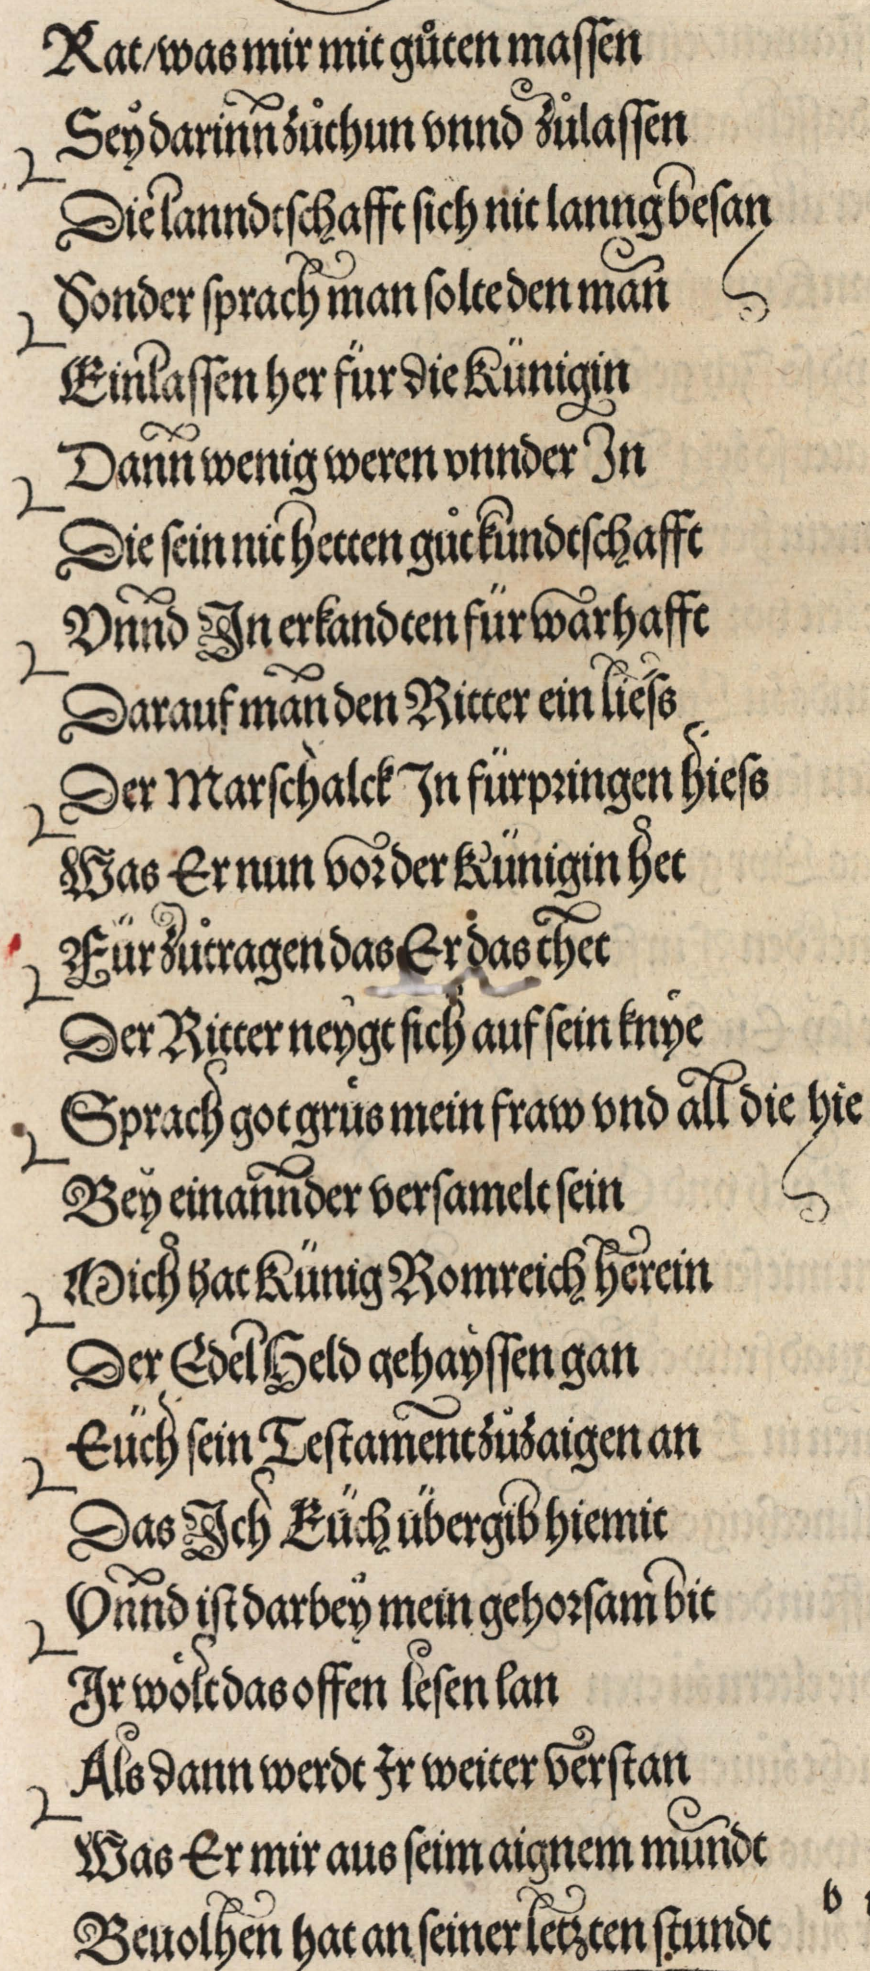 Rat/was mir mit gůten massen
Sey darinn zůthun vnnd zůlassen
Die lanndtschafft sich nit lanng besan
Sonder sprach man solte den man
Einlassen her für die Künigin
Dann wenig weren vnnder In
Die sein nit hetten gůt kundtschafft
Vnnd In erkandten für warhafft
Darauf man den Ritter ein liess
Der Marschalck In fürpringen hiess
Was Er nun vor der Künigin het
Für zůtragen das Er das thet
Der Ritter neygt sich auf sein knye
Sprach got grüs mein fraw vnd all die hie
Bey einannder versamelt sein
Mich hat Künig Romreich herein
Der Edel Held gehayssen gan
Euch sein Testament zůzaigen an
Das Ich Eüch übergib hiemit
Vnnd ist darbey mein gehorsam bit
Ir wölt das offen lesen lan
Als dann werdt Ir weiter verstan
Was Er mir aus seim aignem mundt
Beuolhen hat an seiner letzten stundt
b